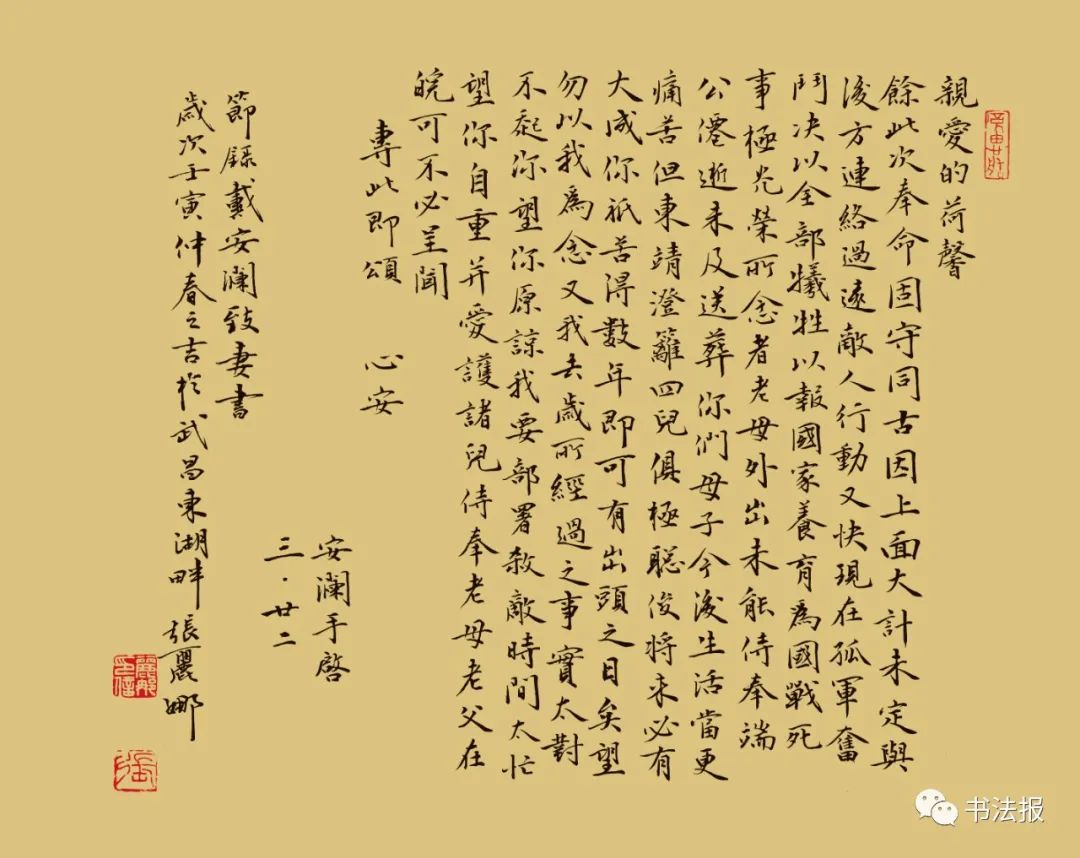 親愛的荷馨
餘此次奉命固守同古因上面大計未定與
後方連絡過遠敵人行動又快現在孤軍奮
鬥决以全部犧牲以報國家養育為國戰死
事極光榮所念者老母外出未能侍奉端
公僊逝未及送葬你們母子今後生活當更
痛苦但東靖澄籬四兒俱極聰俊將来必有
大成你祇苦得數年即可有出頭之日矣望
勿以我為念又我去歲所經過之事實太對
不起你望你原諒我要部署殺敵時間太忙
望你自重并愛護諸兒侍奉老母老父在
皖可不必呈聞
專此即頌 心安
安瀾手啓
三·廿二
節録戴安瀾致妻書
歲次壬寅仲春之吉於武昌東湖畔 張麗娜
书法报